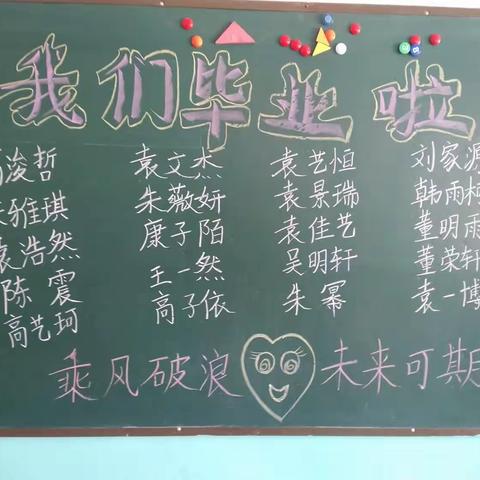 我们毕业啦
浚哲 袁文杰 袁艺恒 刘家源
雅琪 朱薇妍 袁景瑞 韩雨柯
袁浩然 康子陌 袁佳艺 董明雨
陈震 王一然 吴明轩 董荣轩
高艺珂 高子依 朱幂 袁一博
乘风破浪 未来可期